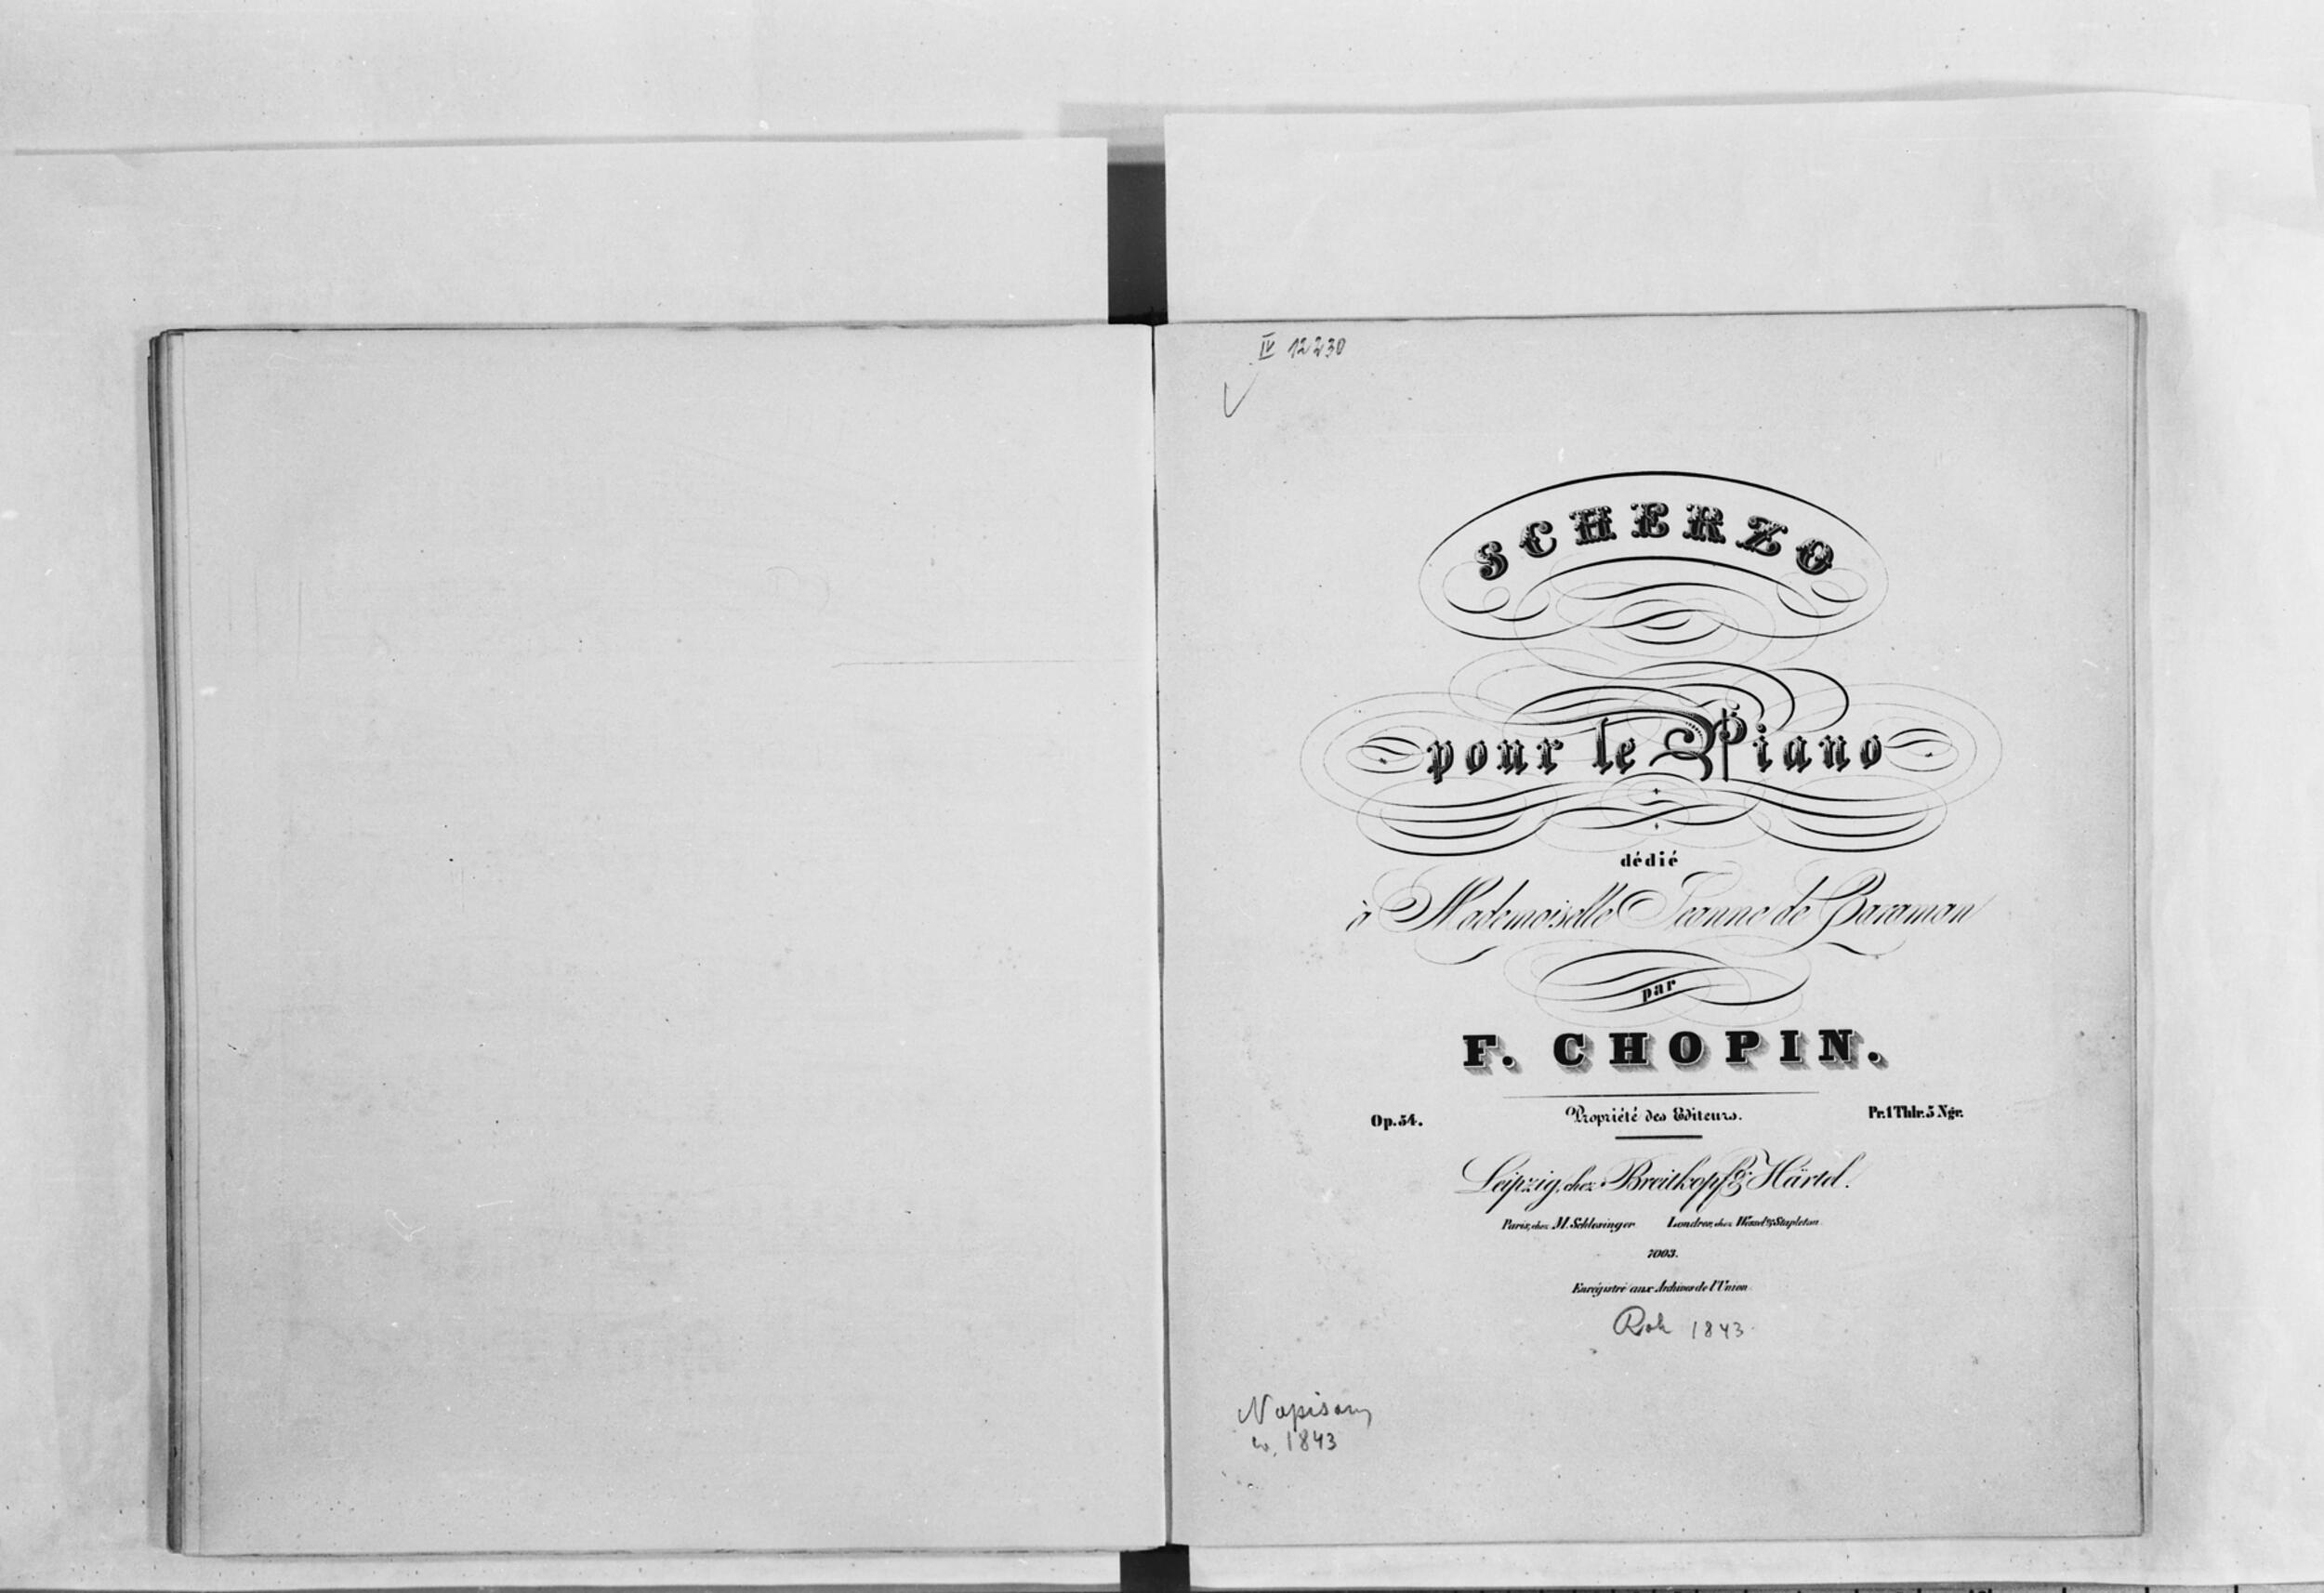 IV 12230
SCHERZO
pour le Piano
dédié
à Mademoiselle Jeanne de Caraman
par
F. CHOPIN.
Op. 54.
Propriété des Editeurs.
Pr. 1 Thlr. 5 Ngr.
Leipzig, chez Breitkopf & Härtel.
Paris, chez M. Schlesinger
Londres, chez Wessel & Stapleton.
7003.
Enrégistré aux Archives de l'Union.
Rok 1843.
Napisany
w. 1843